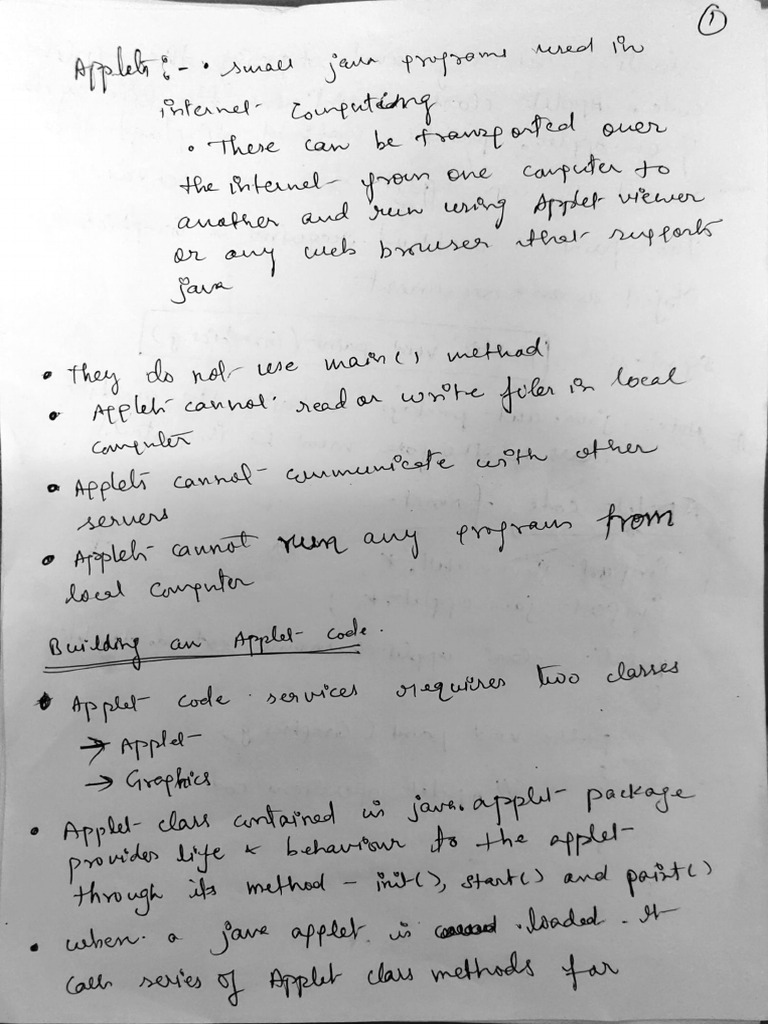 1
Applets :- • small java programs used in
internet computing
• These can be transported over
the internet from one computer to
another and run using Applet viewer
or any web browser that supports
java
• They do not use main() method
• Applets cannot read or write files in local
computer
• Applets cannot communicate with other
servers
• Applets cannot run any program from
local computer
Building an Applet code.
• Applet code services requires two classes
→ Applet
→ Graphics
• Applet class contained in java.applet package
provides life & behaviour to the applet
through its method - init(), start() and paint()
• when a java applet is loaded. It
calls series of Applet class methods for